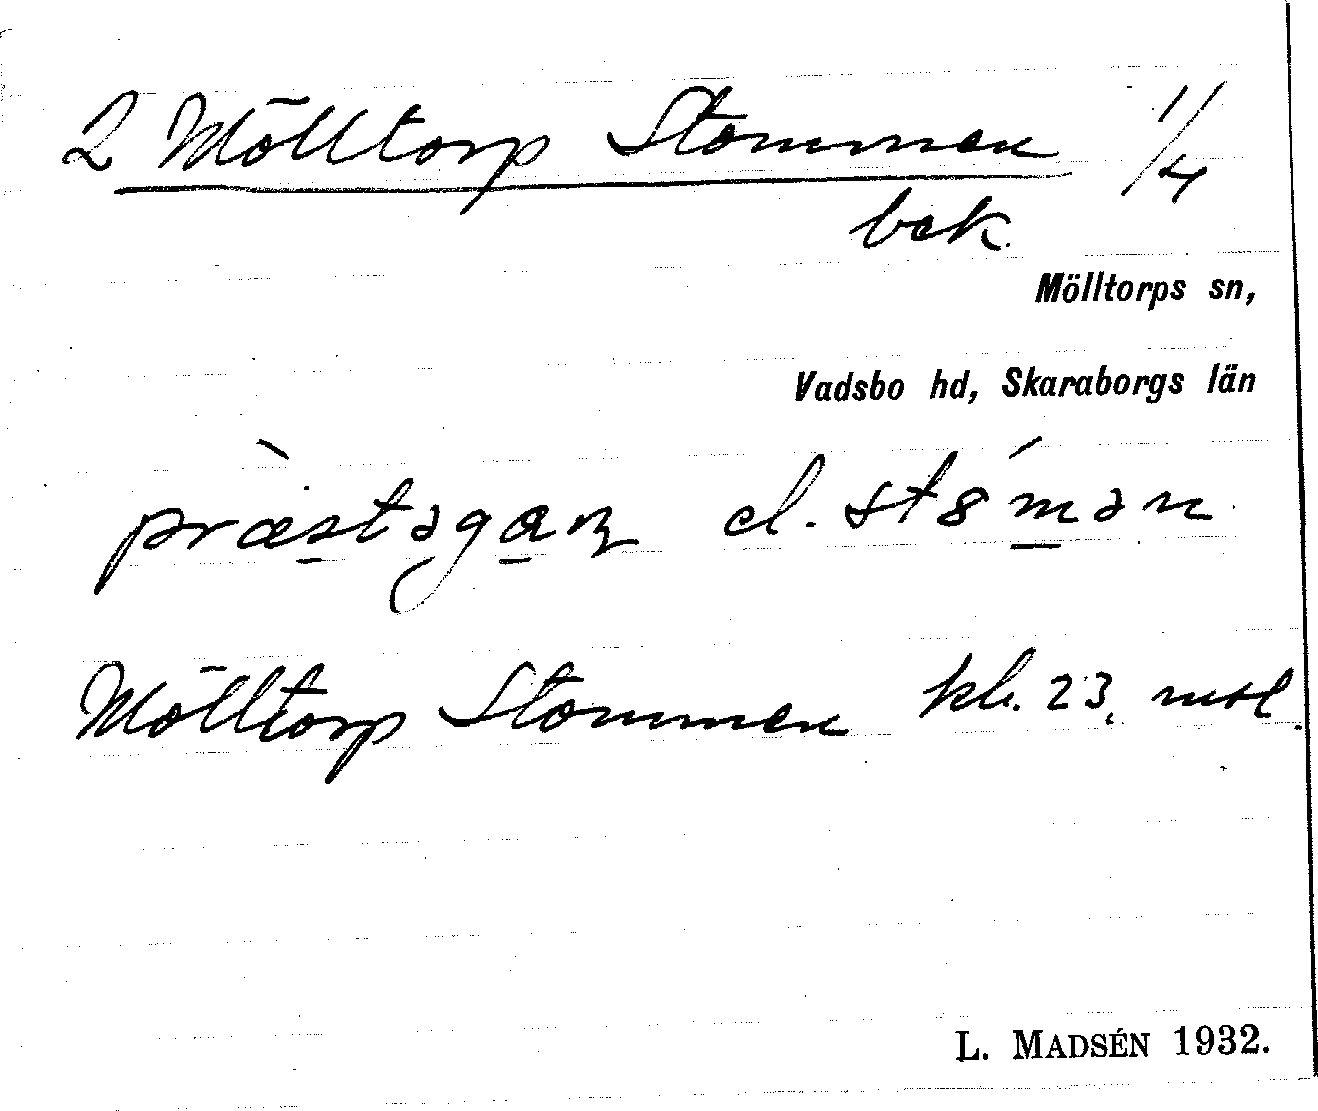 2 Mölltorp Stommen 1/4
bek.
Mölltorps sn,
Vadsbo hd, Skaraborgs län
præ̀stəgaɳ el. stȣ́mən
Mölltorp Stommen kb. 23, mtl.
L. MADSÉN 1932.